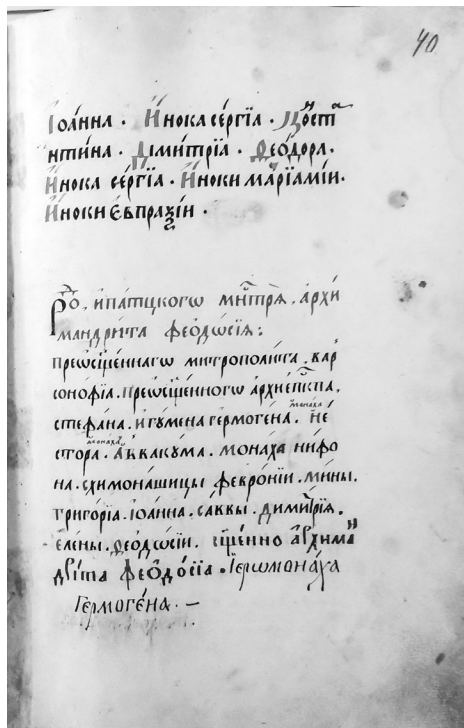 40
Іѡа́нна . И҆́нока се́ргїа . Кѡста
нтина . Дими́трїа . Ѳео́дора .
И҆́нока се́ргїа . И҆́ноки марїамі́и .
И҆́ноки є҆ѵпраѯі́и .
Ро . и҆па́тцкогѡ мнⷭ҇трѧ̀ . а҆рхи
мандри́та ѳеодо́сїѧ :
преѡсщ҃е́ннаго митрополи́та . вар
соно́фїа . преѡсщ҃е́нного а҆рхїепⷭ҇кпа .
стефа́на . и҆гу́мена гермоге́на . монаха не́
стора . монаха а҆ввакꙋ́ма . мона́ха ни́фо
на . схимона́шицы февро́нїи . ми́ны .
григо́рїа . і҆ѡа́нна . са́ввы . дими́трїѧ .
є҆ле́ны . ѳеодо́сїи . сщ҃е́нно а҆рхима
дри́та ѳеѻдо́сїа . І҆еромона́ха
Гермоге́на . —